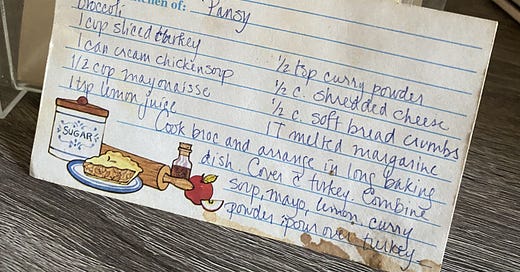 kitchen of: Pansy
broccoli
1 cup sliced turkey
1 can cream chicken soup
1/2 cup mayonaisse
1 tsp lemon juice
1/2 tsp curry powder
1/2 c. shredded cheese
1/2 c. soft bread crumbs
1 T melted margarine
Cook broc and arrange in long baking
dish. Cover c̄ turkey. Combine
soup, mayo, lemon, curry
powder & pour over turkey
SUGAR